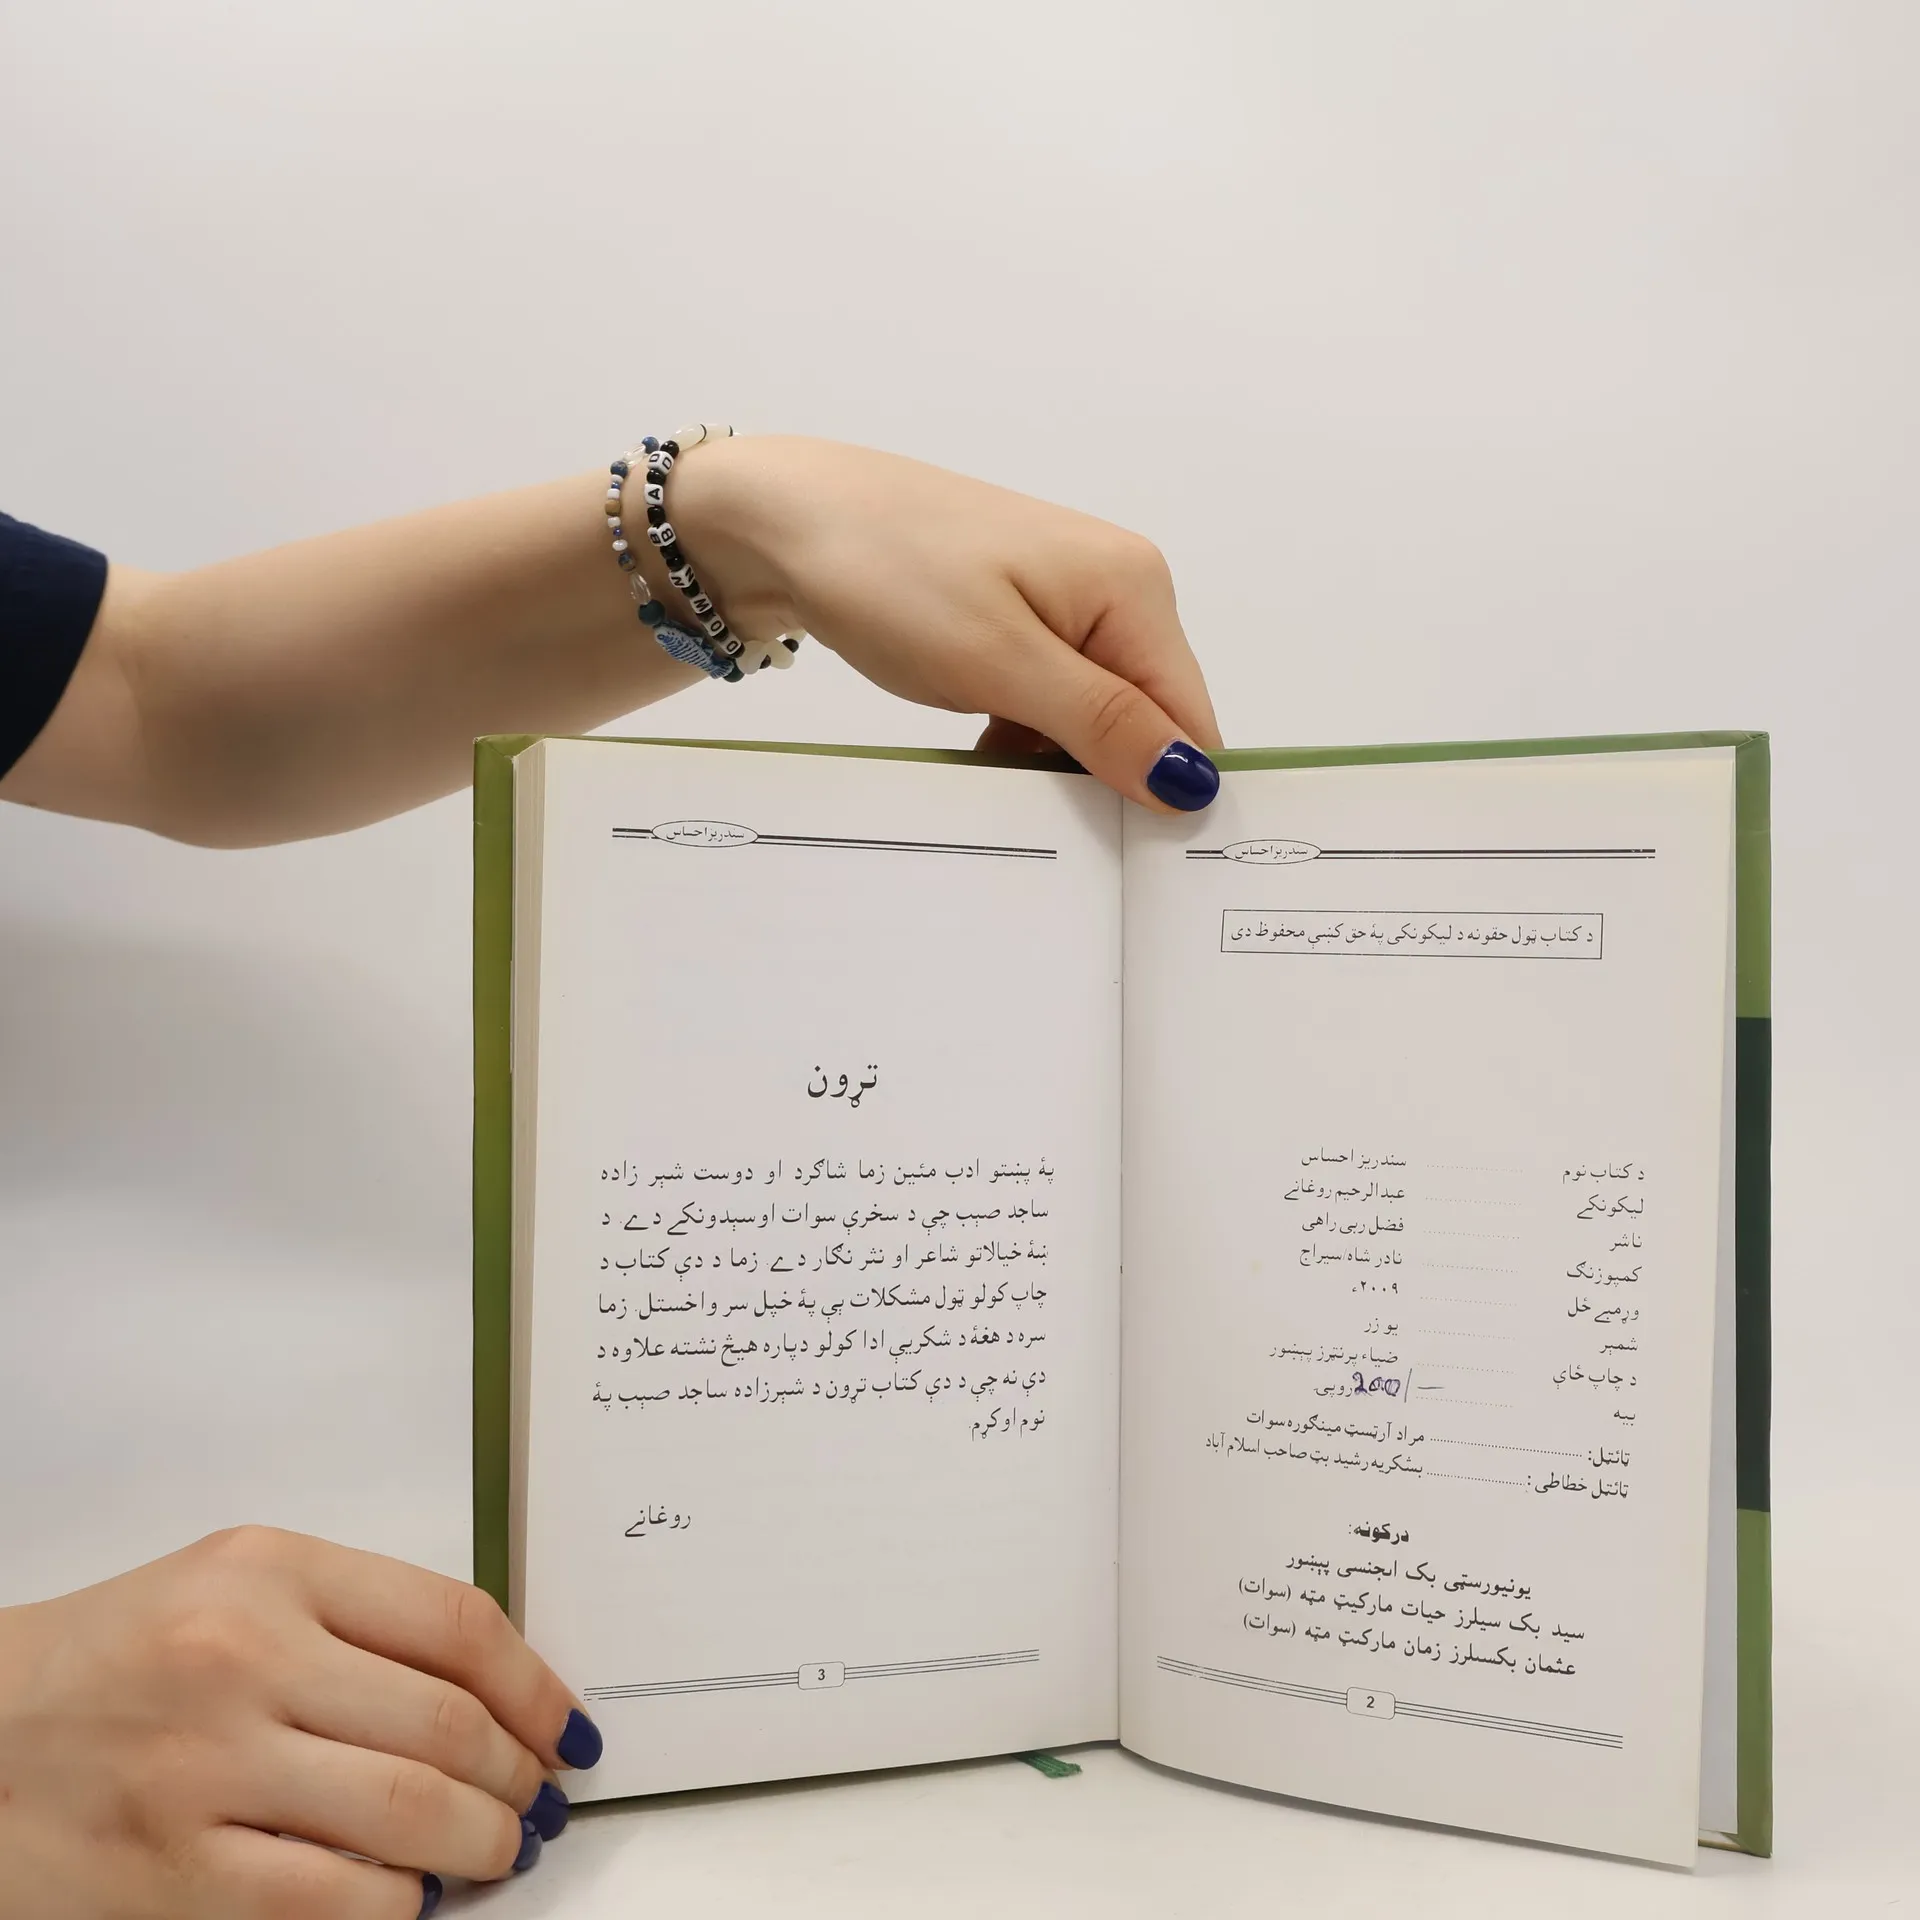 سندریز احساس
د کتاب ټول حقونه د لیکونکی پهٔ حق کښې محفوظ دی
د کتاب نوم ........ سندریز احساس
لیکونکے ........ عبدالرحیم روغانے
ناشر ........ فضل ربی راهی
کمپوزنګ ........ نادر شاه/سیراج
وړمبے ځل ........ ۲۰۰۹ء
شمېر ........ یو زر
د چاپ ځاې ........ ضیاء پرنټرز پېښور
بیه ........ 200/— روپۍ
ټائټل: ........ مراد آرټسټ مینګوره سوات
ټائټل خطاطی: ........ بشکریه رشید بټ صاحب اسلام آباد
درکونه:
یونیورسټی بک ایجنسی پېښور
سید بک سیلرز حیات مارکیټ مټه (سوات)
عثمان بکسیلرز زمان مارکیټ مټه (سوات)
2
سندریز احساس
تړون
پهٔ پښتو ادب مئین زما شاګرد او دوست شېر زاده
ساجد صېب چې د سخرې سوات اوسېدونکے دے. د
ښهٔ خیالاتو شاعر او نثر نګار دے. زما د دې کتاب د
چاپ کولو ټول مشکلات ېې پهٔ خپل سر واخستل. زما
سره د هغهٔ د شکریې ادا کولو دپاره هیڅ نشته علاوه د
دې نه چې د دې کتاب تړون د شېرزاده ساجد صېب پهٔ
نوم اوکړم.
روغانے
3
D
A
B
B
W
O
O